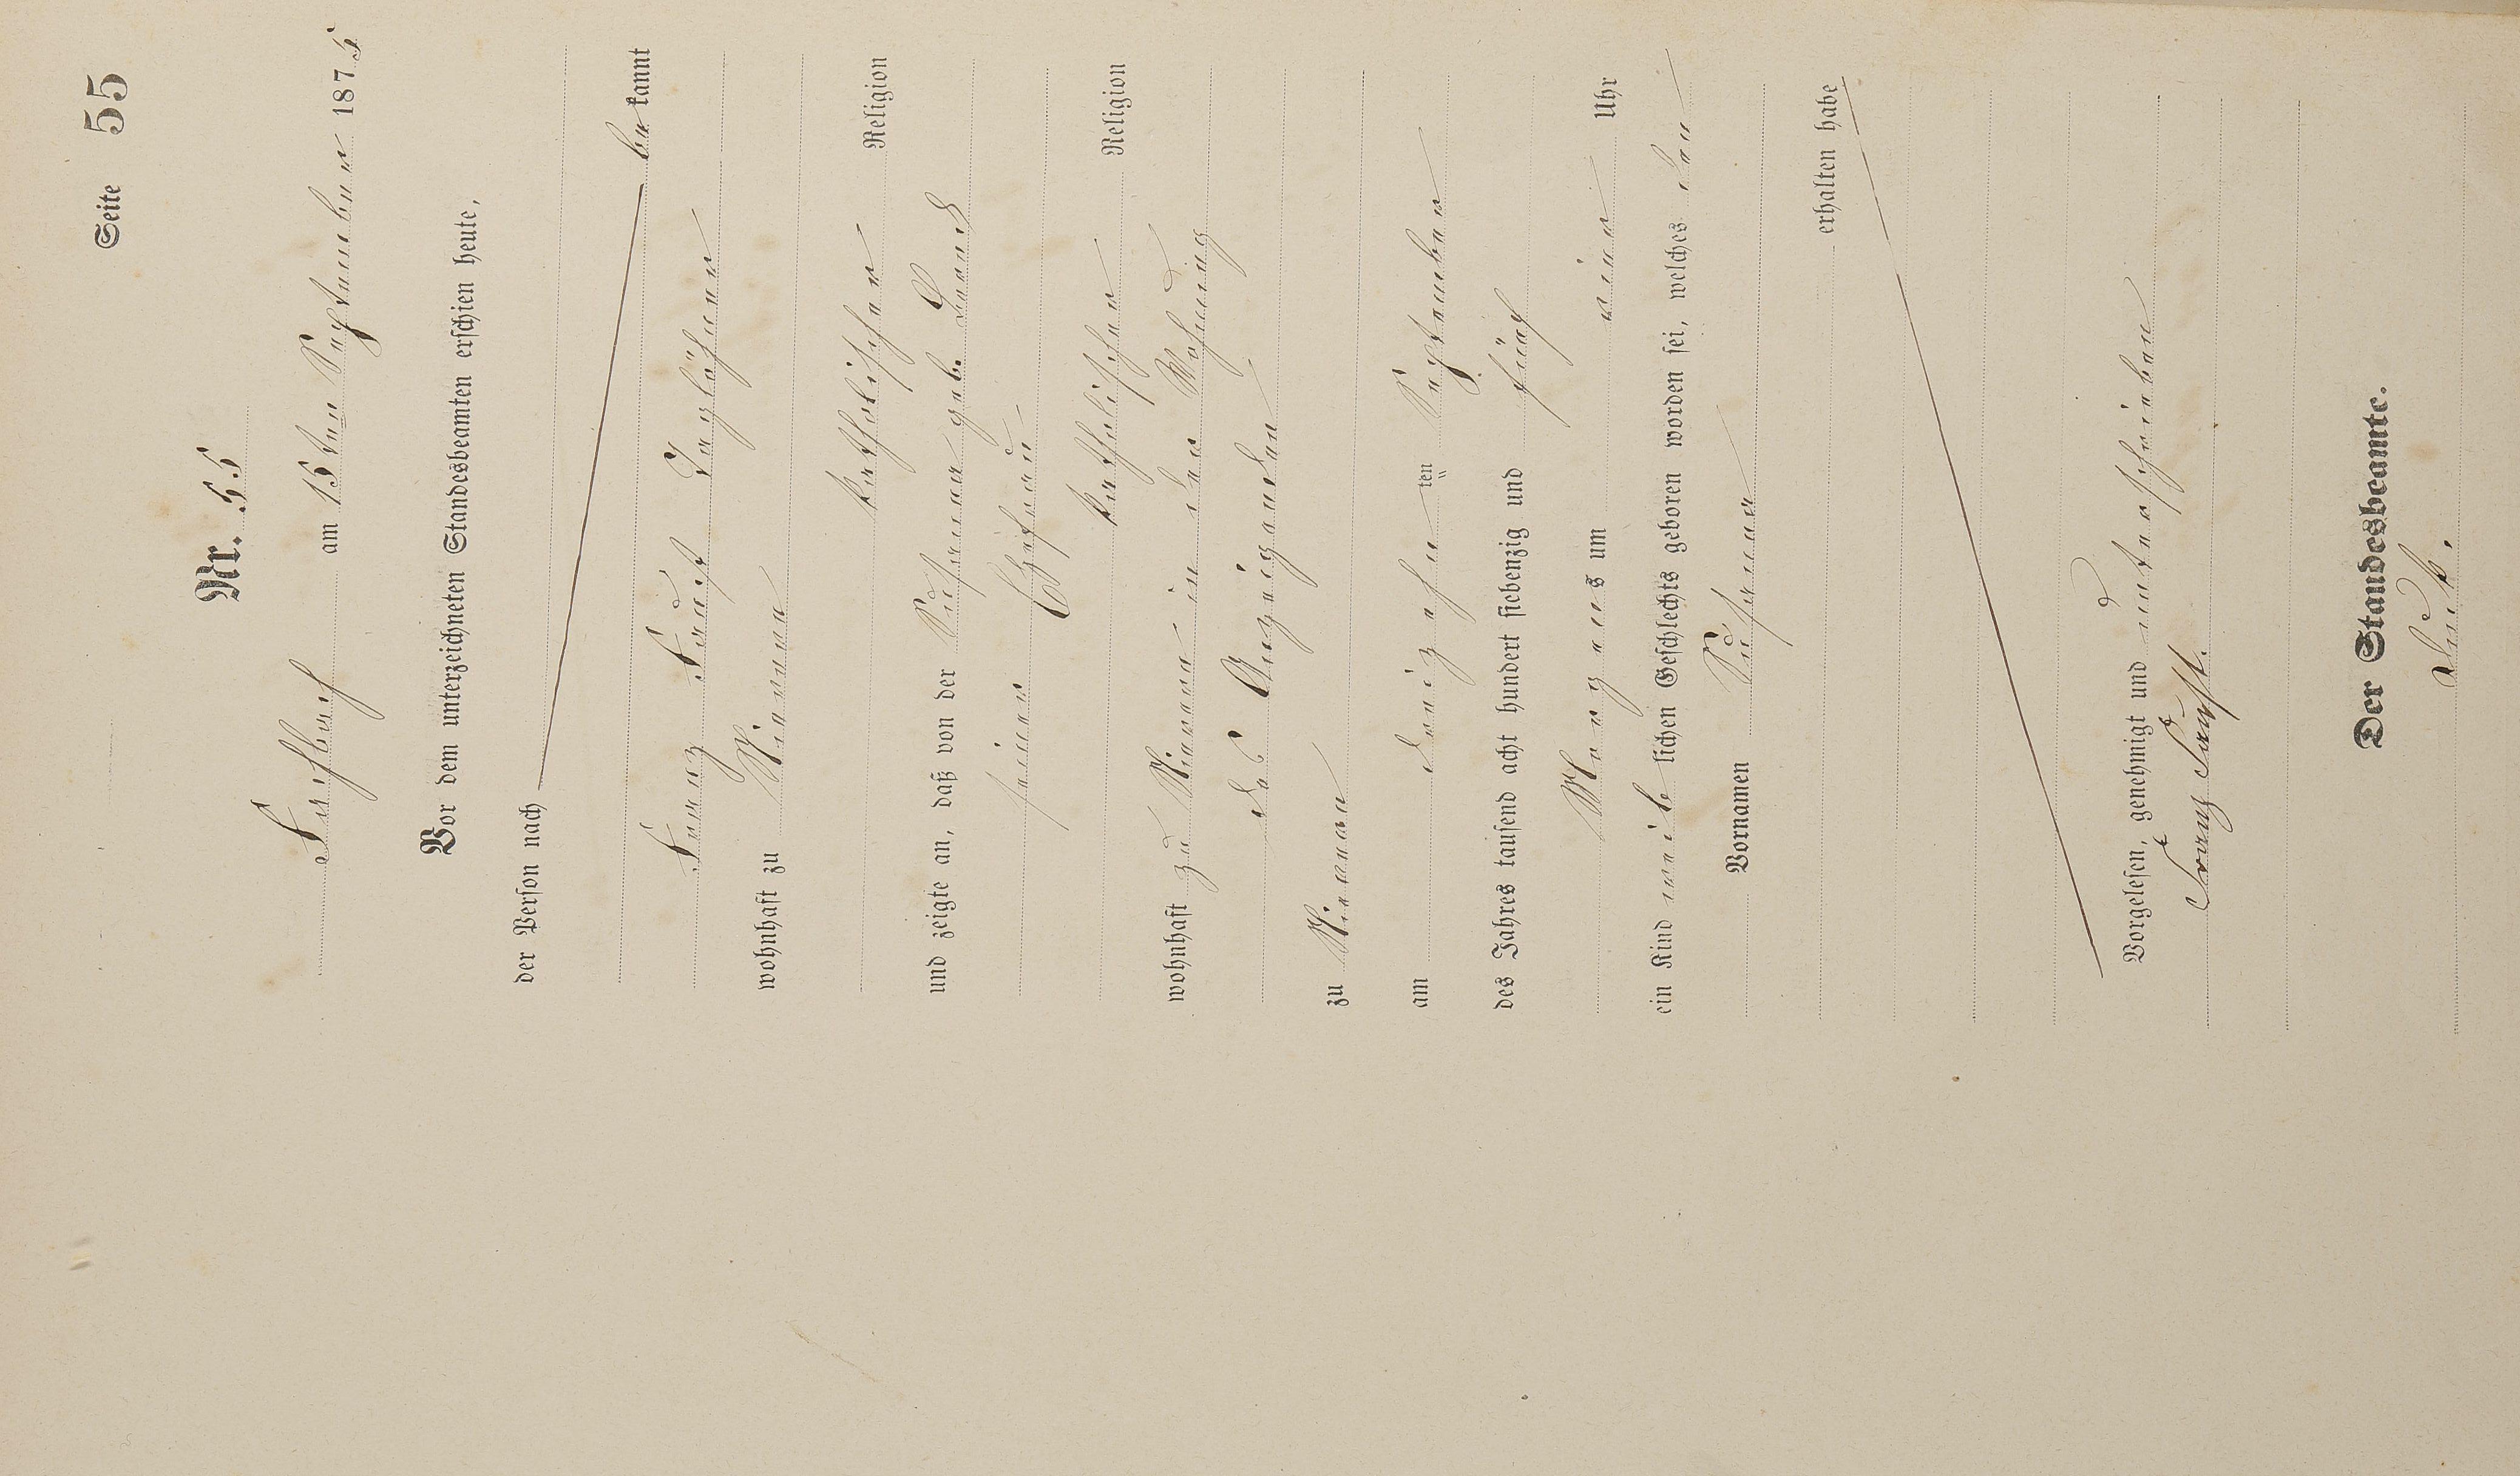 Seite 55
Nr. 55
Fischbach am 15ten September 1875
Vor dem unterzeichneten Standesbeamten erschien heute,
der Person nach
bekannt
Franz Faust Taglöhner
wohnhaft zu
katholischer Religion
und zeigte an, daß von der Susanna geb.
seiner Ehefrau
katholischer Religion
wohnhaft zu in der Wohnung
des Anzeigenden
zu
am dreizehn ten September
des Jahres tausend acht hundert siebenzig und fünf
Morgens um vier Uhr
ein Kind weiblichen Geschlechts geboren worden sei, welches den
Vornamen Susanna
erhalten habe
Vorgelesen, genehmigt und unterschrieben
Franz Faust.
Der Standesbeamte.